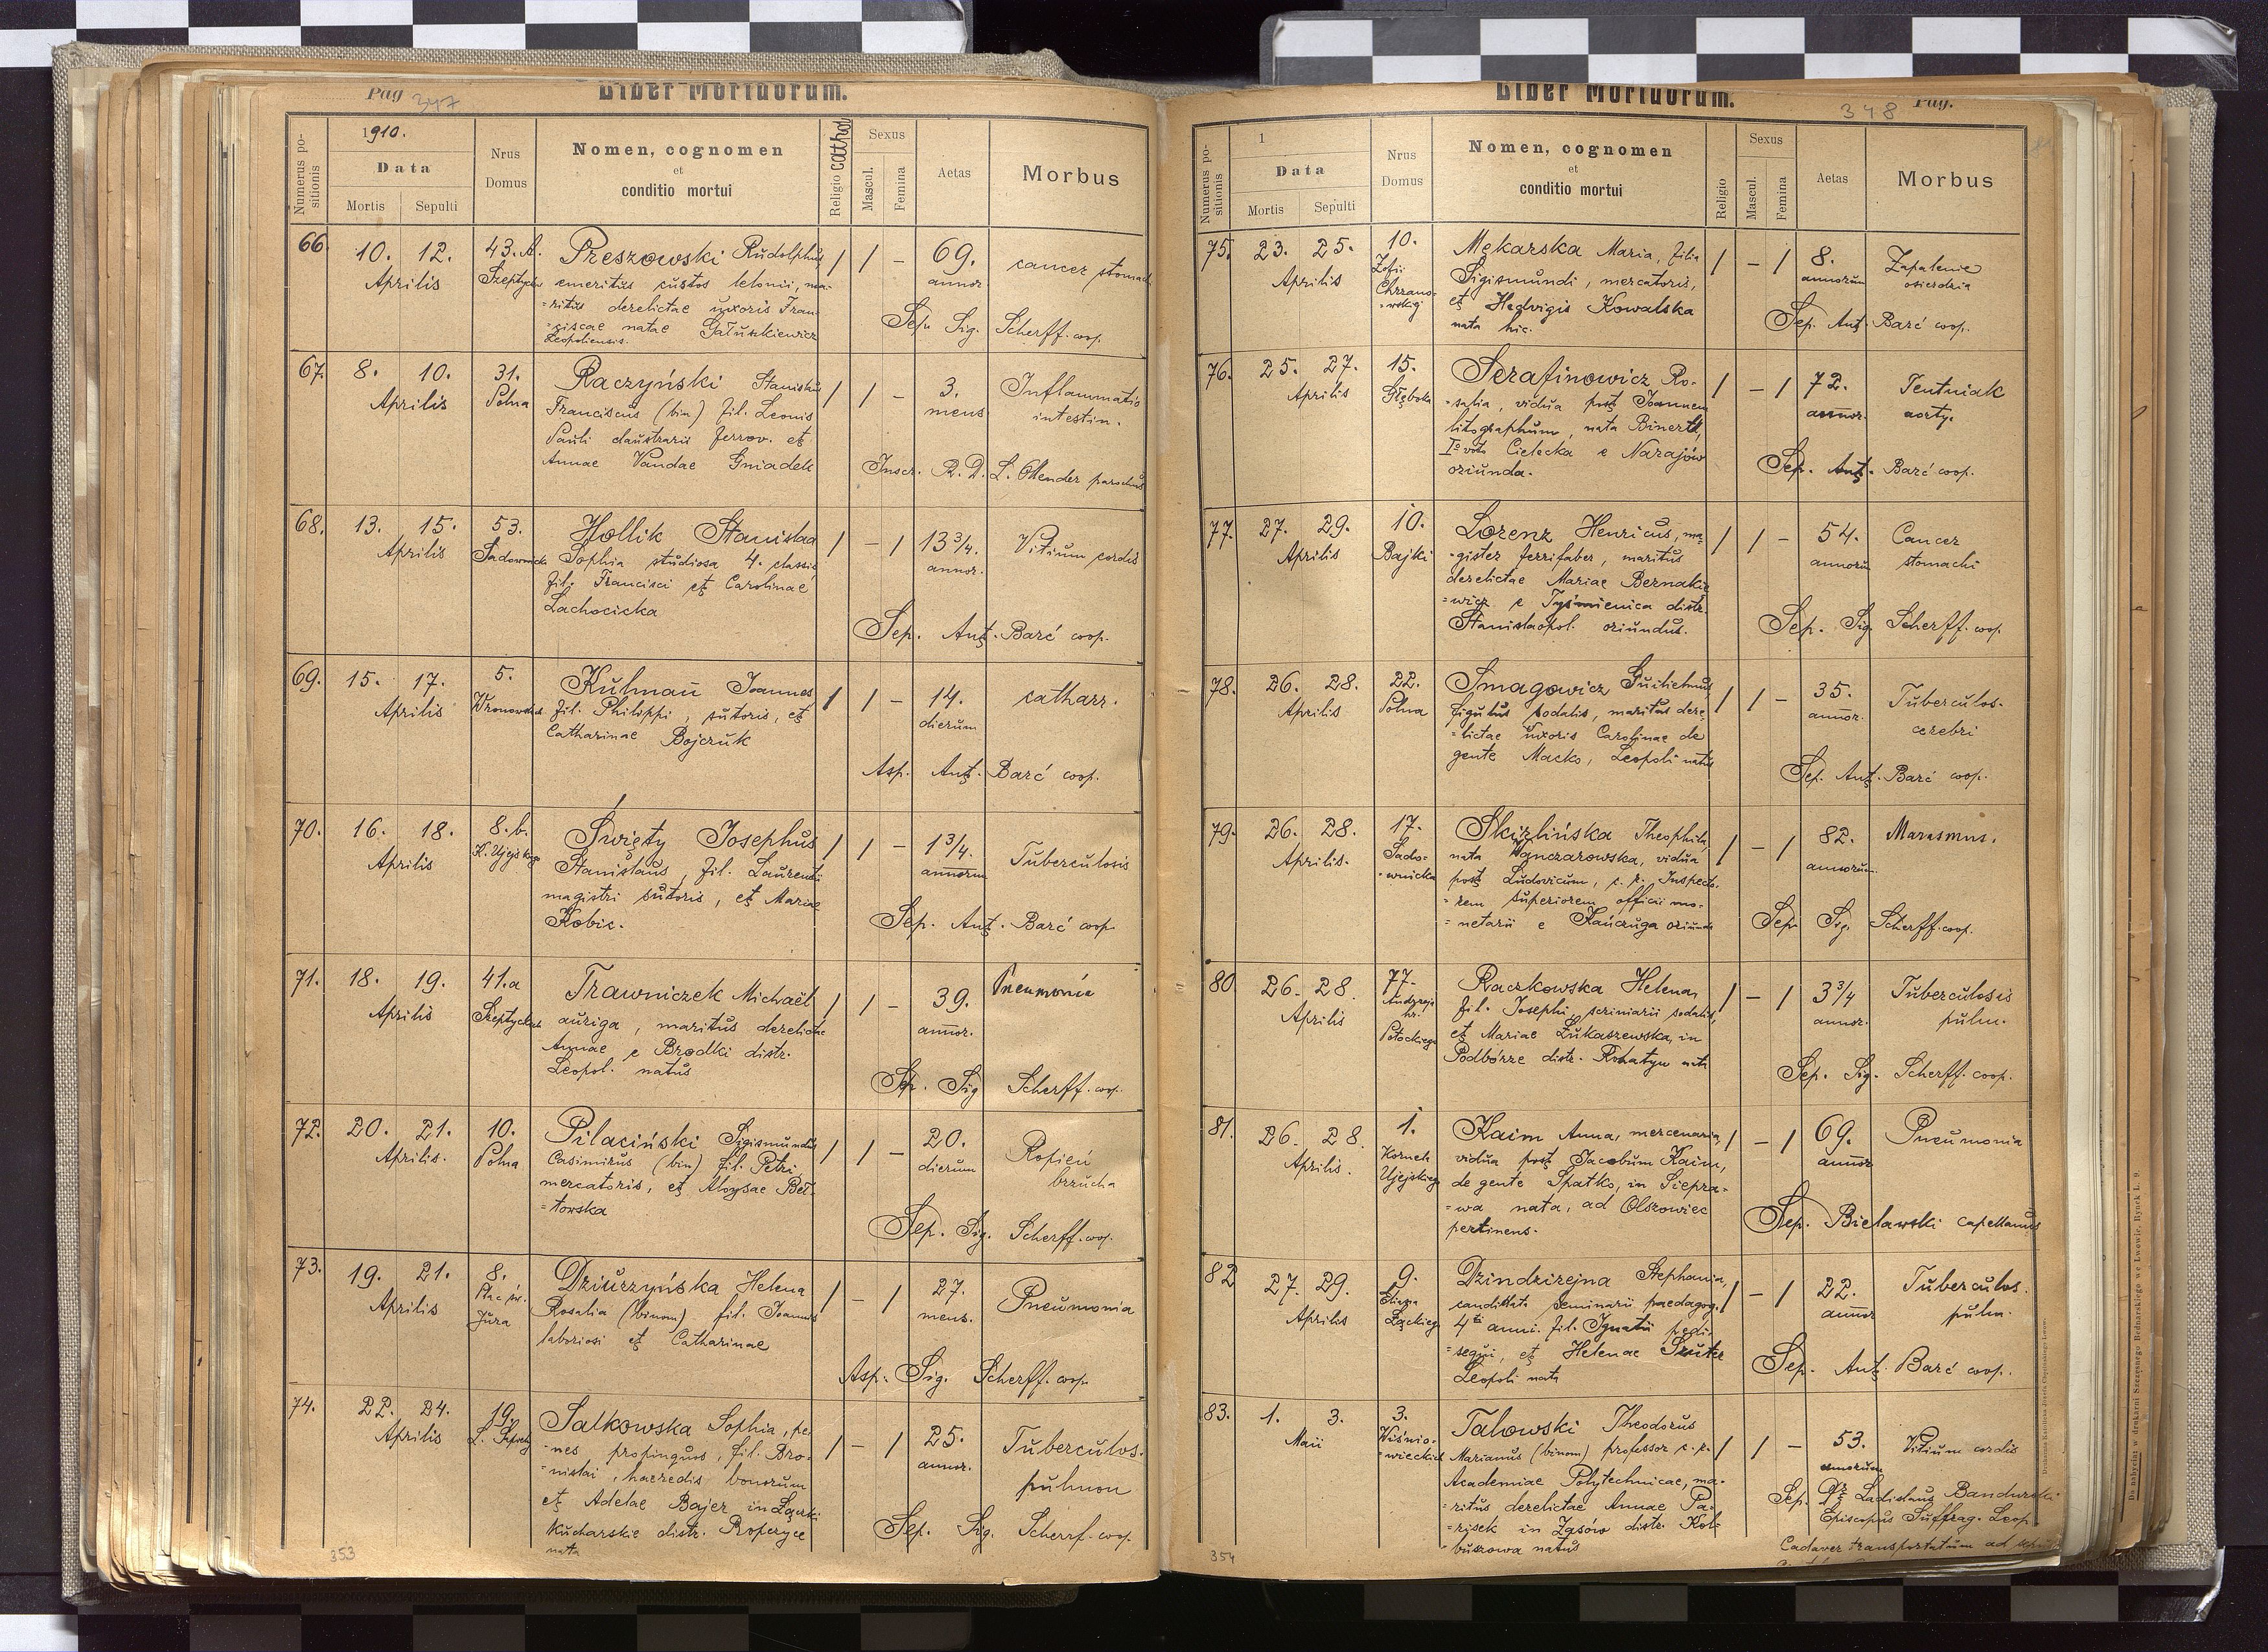 Pag 347
Liber Mortuorum.
Numerus positionis
1910.
Data
Mortis Sepulti
Nrus Domus
Nomen, cognomen
et
conditio mortui
Religio cathol
Sexus
Mascul. Femina
Aetas
Morbus
66. 10. 12. 43. A. Preszowski Rudolphus / / – 69. cancer stomach
Aprilis Szeptyckich emeritus custos telonii, ma- annor
=ritus derelictae uxoris Fran-
=ciscae natae Gałuszkiewicz Sep. Sig. Scherff. coop.
Leopoliensis.
67. 8. 10. 31. Raczyński Stanislaus / / – 3. Inflammatio
Aprilis Polna Franciscus (bin) fil. Leonis mens intestin.
Pauli claustraris ferrov. et
Annae Vandae Gniadek Inscr. R. D. L. Ollender parochus
68. 13. 15. 53. Hollik Stanislaa / – / 13 3/4. Vitium cordis
Aprilis Sadownicka Sophia studiosa 4. classis annor.
fil. Francisci et Carolinae
Lachocicka
Sep. Ant. Barć coop.
69. 15. 17. 5. Kulmaň Joannes / / – 14. catharr.
Aprilis Wronowskich fil. Philippi, sutoris, et dierum
Catharinae Bojczuk
Asp. Ant. Barć coop.
70. 16. 18. 8. b. Święty Josephus / / – 1 3/4. Tuberculosis
Aprilis K. Ujejskiego Stanislaus, fil. Laurentii annorum
magistri sutoris, et Mariae
Kobic. Sep. Ant. Barć coop.
71. 18. 19. 41. a Trawniczek Michaël / / – 39. Pneumonia
Aprilis Szeptyckich auriga, maritus derelictae annor.
Annae e Brodki distr.
Leopol. natus Sep. Sig Scherff. coop.
72. 20. 21. 10. Pilaciński Sigismundus / / – 20. Ropień
Aprilis. Polna Casimirus (bin) fil. Petri dierum brzucha
mercatoris, et Aloysae Beł-
=towska
Sep. Sig. Scherff. coop.
73. 19. 21. 8. Dziurzyńska Helena / – / 27. Pneumonia
Aprilis Plac św. Jura Rosalia (binom) fil. Joannis mens.
laboriosi et Catharinae
Asp. Sig. Scherff. coop.
74. 22. 24. 19. Salkowska Sophia, pe- / – / 25. Tuberculos.
Aprilis =nes propinquos, fil. Bro- annor. pulmon
=nislai, haeredis bonorum
et Adelae Bajer in Łączki
Kucharskie distr. Ropczyce Sep. Sig. Scherff. coop.
nata
353
348 Pag.
Liber Mortuorum.
Numerus positionis
1
Data
Mortis Sepulti
Nrus Domus
Nomen, cognomen
et
conditio mortui
Religio
Sexus
Mascul. Femina
Aetas
Morbus
75. 23. 25. 10. Mękarska Maria, filia / – / 8. Zapalenie
Aprilis Zofii Chrzano-=wskiej Sigismundi, mercatoris, annorum osierdzia
et Hedvigis Kowalska
nata hic. Sep. Ant. Barć coop.
76. 25. 27. 15. Serafinowicz Ro- / – / 72. Tentniak
Aprilis Głęboka =salia, vidua post Joannem annor. aorty.
litographum, nata Binertl,
Iº voto Cielecka e Narajów
oriunda. Sep. Ant. Barć coop.
77. 27. 29. 10. Lorenz Henricus, ma- / / – 54. Cancer
Aprilis Bajki =gister ferrifaber, maritus annorum stomachi
derelictae Mariae Bernakie
=wicz e Tyśmienica distr.
Stanislaopol. oriundus. Sep. Sig. Scherff. coop.
78. 26. 28. 22. Smagowicz Guilielmus / / – 35. Tuberculos.
Aprilis Polna figulus sodalis, maritus dere- annor. cerebri
=lictae uxoris Carolinae de
gente Macko, Leopoli natus
Sep. Ant. Barć coop.
79. 26. 28. 17. Skizlińska Theophila, / – / 82. Marasmus.
Aprilis. Sado-=wnicka nata Wanczarowska, vidua annorum.
post Ludovicum, c. r. Inspecto-
=rem superiorem officii mo-
=netarii e Kańczuga oriunda Sep. Sig. Scherff. coop.
80 26. 28. 77. Raczkowska Helena, / – / 3 3/4 Tuberculosis
Aprilis Andrzeja hr. Potockiego fil. Josephi, scriniarii sodalis, annor. pulm.
et Mariae Łukaszewska, in
Podbórze distr. Rohatyn nata
Sep. Sig. Scherff. coop.
81. 26. 28. 1. Kaim Anna, mercenaria / – / 69. Pneumonia
Aprilis. Kornela Ujejskiego vidua post Jacobum Kaim, annor
de gente Spatko, in Siepra-
=wa nata, ad Olszowiec
pertinens. Sep. Bielawski capellanus
82 27. 29. 9. Dzindziejna Stephania, / – / 22. Tuberculos.
Aprilis Łąckiego candidata seminarii paedagog. annor pulm.
4ti anni. fil. Ignatii pedi-
=sequi, et Helenae Szuter
Leopoli nata Sep. Ant. Barć coop.
83. 1. 3. 3. Talowski Theodorus / / – 53. Vitium cordis
Maii Wiśnio-=wieckich Marianus (binom) professor c. r. annorum
Academiae Polytechnicae, ma-
=ritus derelictae Annae Pa- Sep. Dr Ladislaus Bandurski
=risek in Zasów distr. Kol- Episcopus Suffrag. Leop.
=buszowa natus Cadaver transportatum ad
354
Do nabycia w drukarni Szczęsnego Bednarskiego we Lwowie, Rynek L. 9.